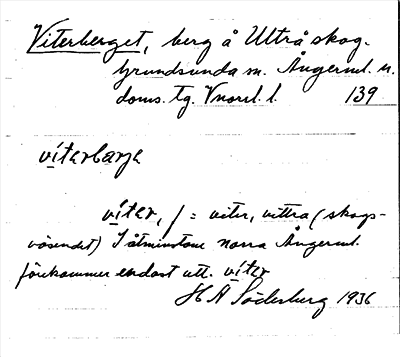 Viterberget, berg å Utträ skog.
Grundsunda sn. Ångerml. n.
doms. tg. Vnorrl. l. 139
vítərbærjə
vítər, f = viter, vittra (skogs-
väsendet) I åtminstone norra Ångerml.
förekommer endast utt. vítər
H Å Söderberg 1936